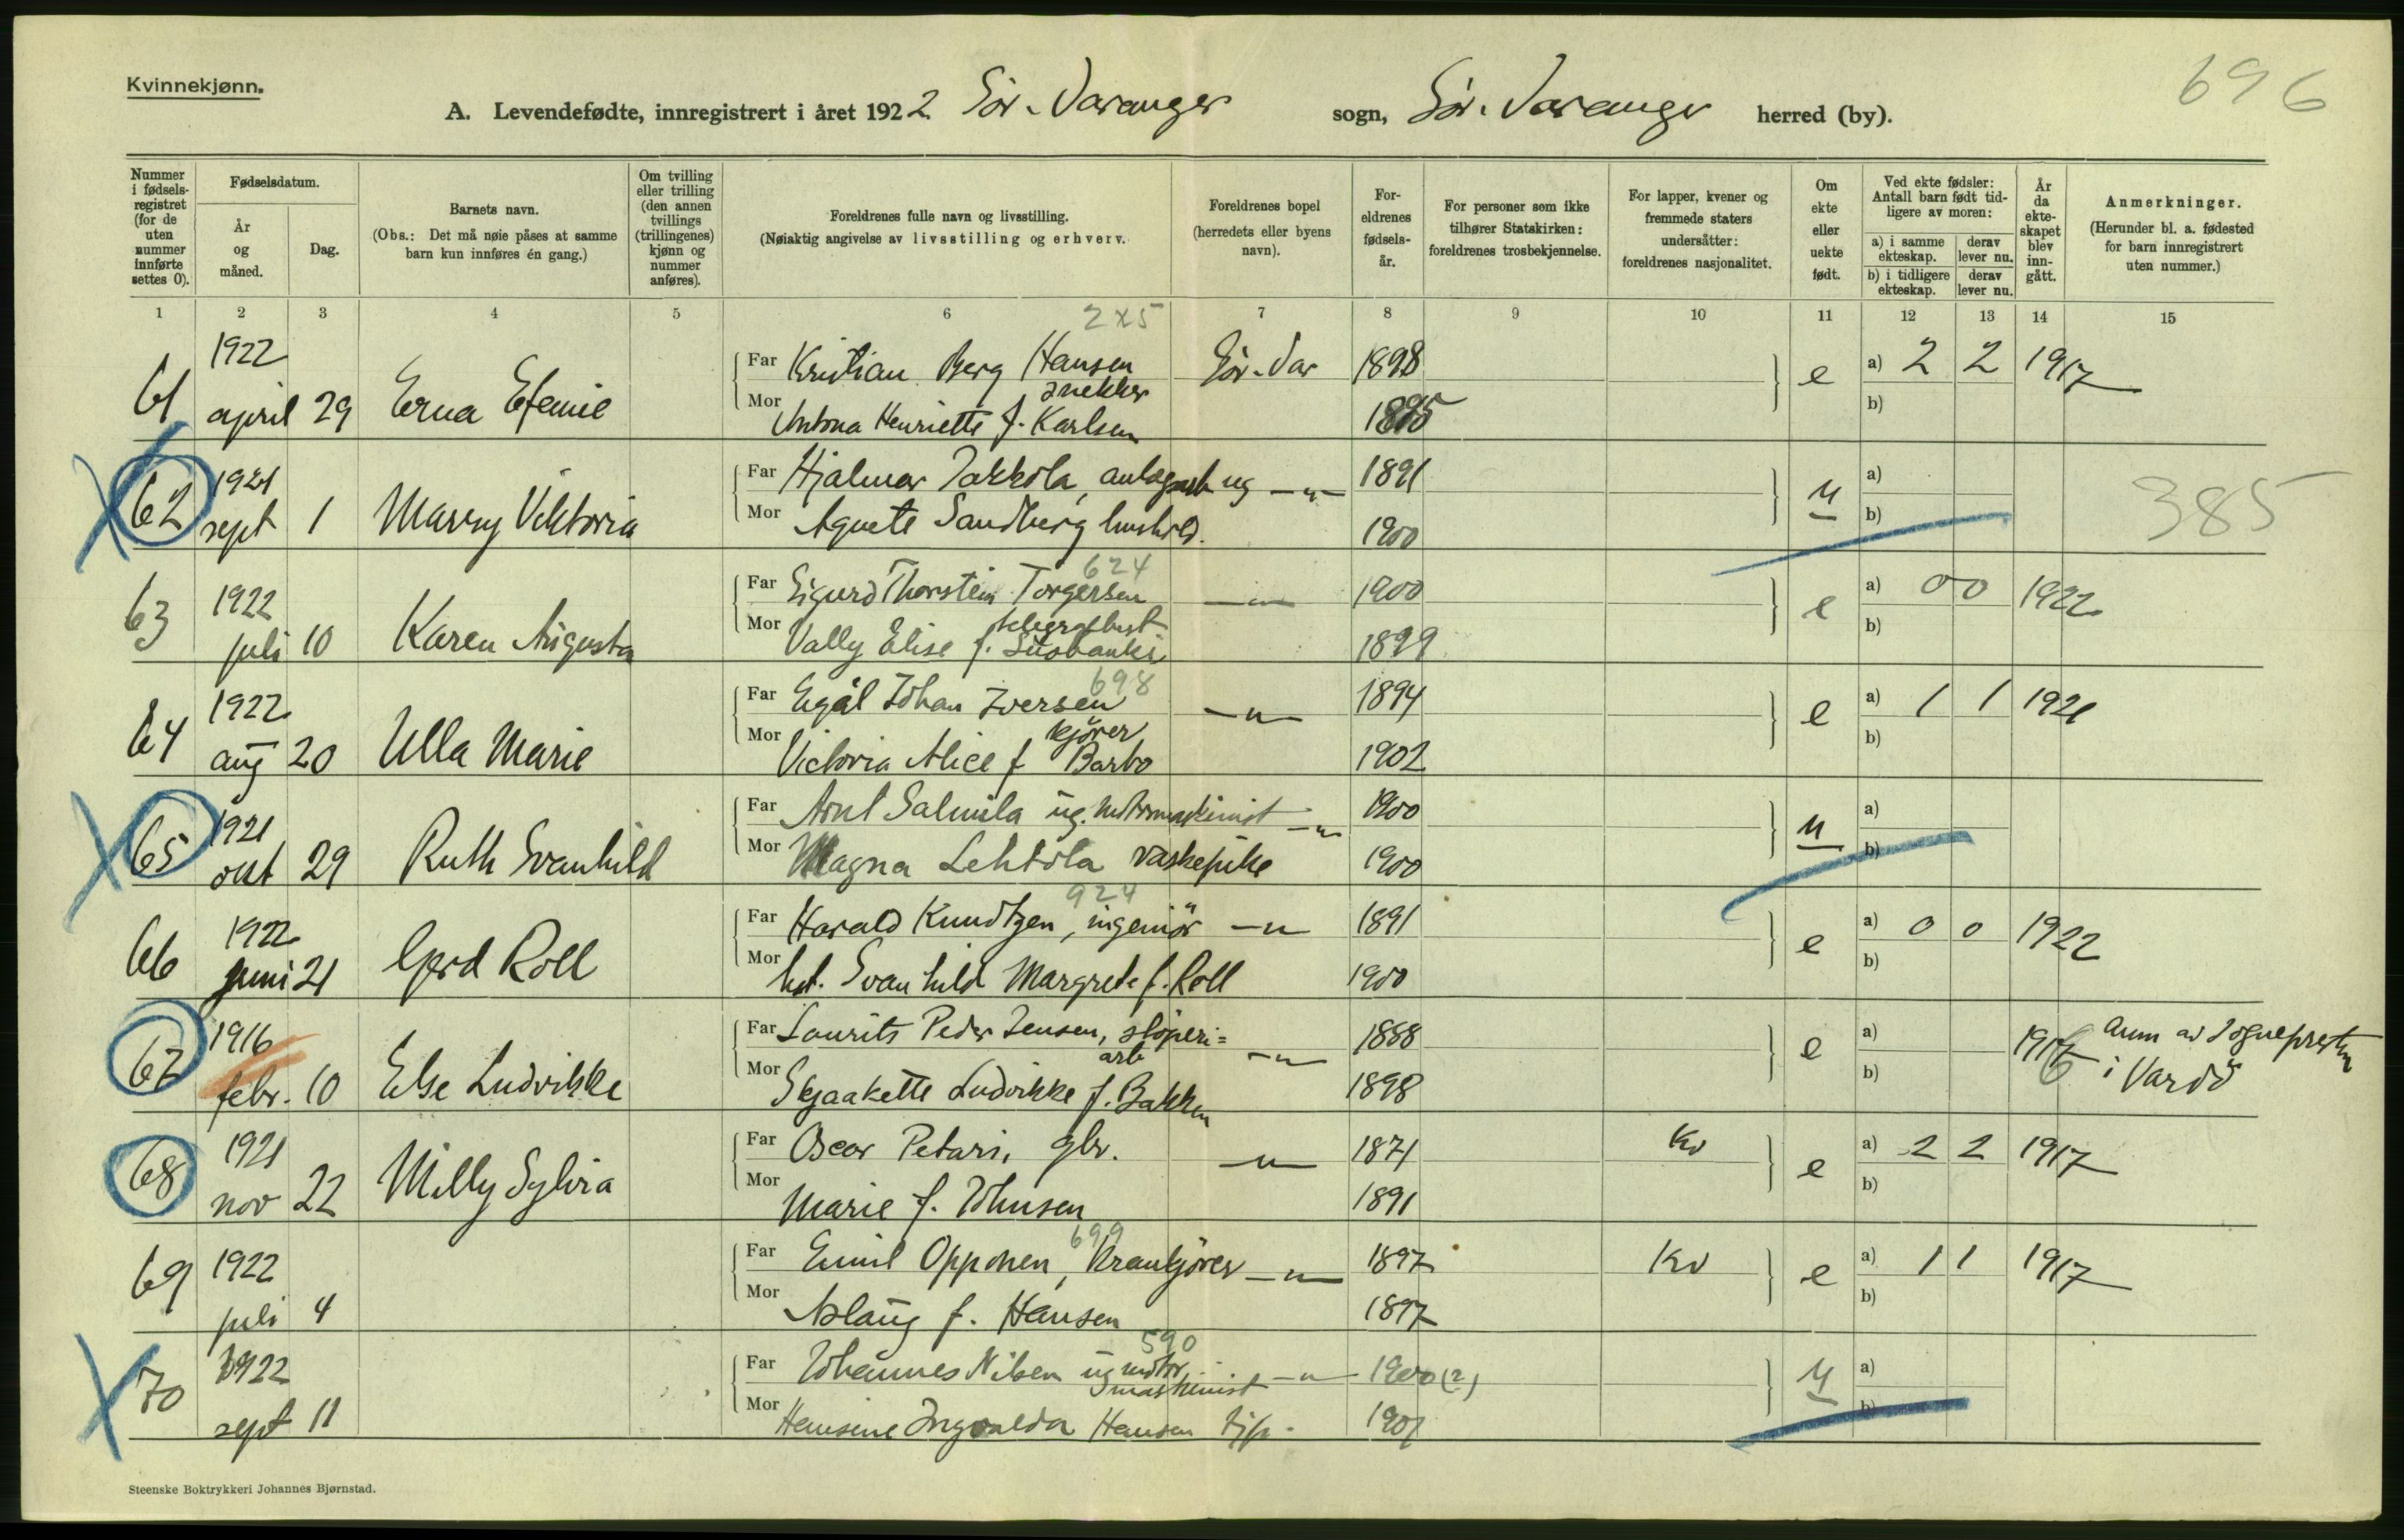 Kvinnekjønn.
696
A. Levendefødte, innregistrert i året 1922 Sör-Varanger sogn, Sör-Varanger herred (by).
Nummer i fødsels-registret (for de uten nummer innførte settes 0).
Fødselsdatum.
År og måned.
Dag.
Barnets navn.
(Obs.: Det må nøie påses at samme barn kun innføres én gang.)
Om tvilling eller trilling (den annen tvillings (trillingenes) kjønn og nummer anføres).
Foreldrenes fulle navn og livsstilling.
(Nøiaktig angivelse av livsstilling og erhverv.
Foreldrenes bopel (herredets eller byens navn).
For-eldrenes fødsels-år.
For personer som ikke tilhører Statskirken: foreldrenes trosbekjennelse.
For lapper, kvener og fremmede staters undersåtter: foreldrenes nasjonalitet.
Om ekte eller uekte født.
Ved ekte fødsler: Antall barn født tid-ligere av moren:
a) i samme ekteskap.
derav lever nu.
b) i tidligere ekteskap.
derav lever nu.
År da ekte-skapet blev inn-gått.
Anmerkninger.
(Herunder bl. a. fødested for barn innregistrert uten nummer.)
1 2 3 4 5 6 7 8 9 10 11 12 13 14 15
2x5
61 1922 april 29 Erna Efemie
Far Kristian Berg Hansen snekker Sör-Var 1898 e a) 2 2 1917
Mor Antona Henriette f. Karlsen 1895 b)
62 1921 sept 1 Marry Viktoria
Far Hjalmar Jakkola, anlegsarb ug —"— 1891 u a)
Mor Agnete Sandberg hushold. 1900 b)
385
624
63 1922 juli 10 Karen Augusta
Far Sigurd Thorstein Torgersen telegrafbest —"— 1900 e a) 0 0 1922
Mor Vally Elise f. 1899 b)
698
64 1922 aug 20 Ulla Marie
Far Egil Johan Iversen kjörer —"— 1894 e a) 1 1 1921
Mor Victoria Alice f Barbo 1902 b)
65 1921 okt 29 Ruth Svanhild
Far Arnt Salmila ug. motormaskinist —"— 1900 u a)
Mor Magna Lehtola vaskepike 1900 b)
924
66 1922 juni 21 Gerd Roll
Far Harald Knudtzen, ingeniör —"— 1891 e a) 0 0 1922
Mor hst. Svanhild Margrete f. Roll 1900 b)
67 1916 febr. 10 Else Ludvikke
Far Laurits Peder Jensen, stöperi=arb —"— 1888 e a) 1916 anm av sognepresten i Vardö
Mor Ludvikke f. Bakken 1898 b)
68 1921 nov 22 Milly Sylvia
Far Oscar Petari, gbr. —"— 1871 Kv e a) 2 2 1917
Mor Marie f. Johnsen 1891 b)
699
69 1922 juli 4
Far Emil Opponen, Krankjörer —"— 1897 Kv e a) 1 1 1917
Mor Aslaug f. Hansen 1897 b)
590
70 1922 sept 11
Far Johannes Nilsen ug motormaskinist —"— 1900(?) u a)
Mor Hansine Ingvalda Hansen tjp. 1901 b)
Steenske Boktrykkeri Johannes Bjørnstad.